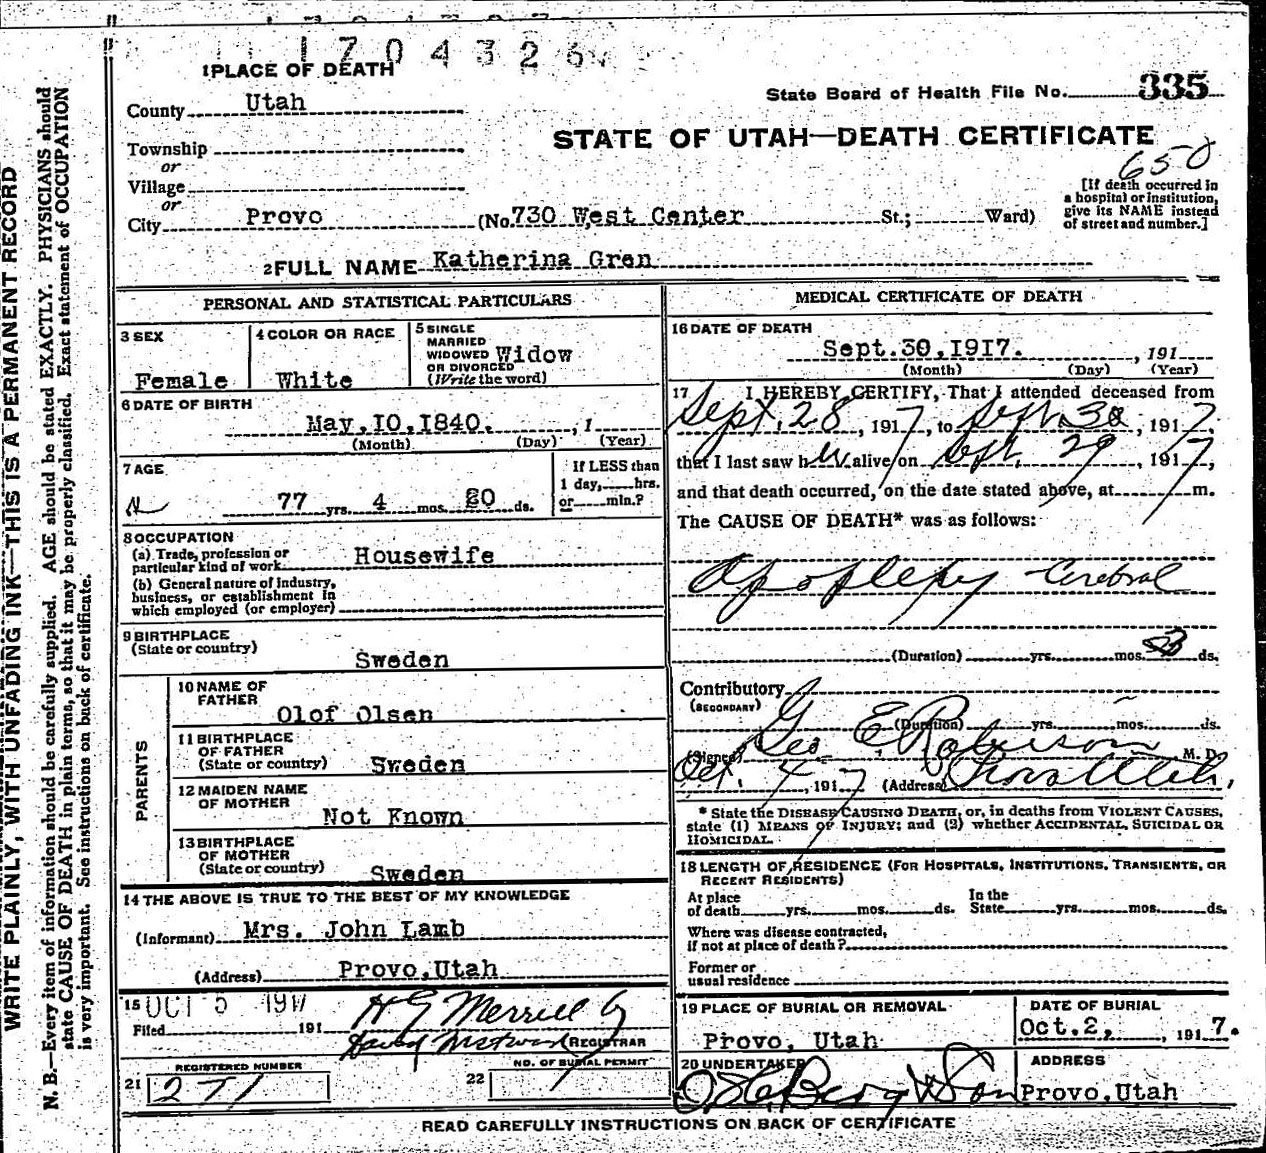 1704326
1 PLACE OF DEATH
State Board of Health File No. 335
County Utah
STATE OF UTAH—DEATH CERTIFICATE
650
Township
or
Village
or
City Provo (No. 730 West Center St.; Ward)
[If death occurred in
a hospital or institution,
give its NAME instead
of street and number.]
2 FULL NAME Katherina Gren
PERSONAL AND STATISTICAL PARTICULARS
3 SEX
Female
4 COLOR OR RACE
White
5 SINGLE
MARRIED
WIDOWED Widow
OR DIVORCED
(Write the word)
6 DATE OF BIRTH
May, 10, 1840. , 1
(Month) (Day) (Year)
7 AGE
77 yrs. 4 mos. 20 ds.
If LESS than
1 day, hrs.
or min.?
8 OCCUPATION
(a) Trade, profession or
particular kind of work Housewife
(b) General nature of industry,
business, or establishment in
which employed (or employer)
9 BIRTHPLACE
(State or country)
Sweden
PARENTS
10 NAME OF
FATHER
Olof Olsen
11 BIRTHPLACE
OF FATHER
(State or country) Sweden
12 MAIDEN NAME
OF MOTHER
Not Known
13 BIRTHPLACE
OF MOTHER
(State or country) Sweden
14 THE ABOVE IS TRUE TO THE BEST OF MY KNOWLEDGE
(Informant) Mrs. John Lamb
(Address) Provo, Utah
15 OCT 5 1917
Filed 191
H G Merrill
REGISTRAR
REGISTERED NUMBER
21 271
NO. OF BURIAL PERMIT
22
MEDICAL CERTIFICATE OF DEATH
16 DATE OF DEATH
Sept. 30, 1917. , 191
(Month) (Day) (Year)
17 I HEREBY CERTIFY, That I attended deceased from
Sept. 28, 1917, to Sept. 30, 1917,
that I last saw her alive on Sept. 29, 1917,
and that death occurred, on the date stated above, at m.
The CAUSE OF DEATH* was as follows:
Apoplexy Cerebral
(Duration) yrs. mos. 3 ds.
Contributory
(SECONDARY)
(Duration) yrs. mos. ds.
(Signed) Geo E. Robison M. D.
Oct. 4, 1917 (Address) Provo Utah,
* State the DISEASE CAUSING DEATH, or, in deaths from VIOLENT CAUSES,
state (1) MEANS OF INJURY; and (2) whether ACCIDENTAL, SUICIDAL OR
HOMICIDAL.
18 LENGTH OF RESIDENCE (FOR HOSPITALS, INSTITUTIONS, TRANSIENTS, OR
RECENT RESIDENTS)
At place
of death yrs. mos. ds.
In the
State yrs. mos. ds.
Where was disease contracted,
if not at place of death?
Former or
usual residence
19 PLACE OF BURIAL OR REMOVAL
Provo, Utah
DATE OF BURIAL
Oct. 2, 1917.
20 UNDERTAKER
Berg & Son
ADDRESS
Provo, Utah
READ CAREFULLY INSTRUCTIONS ON BACK OF CERTIFICATE
WRITE PLAINLY, WITH UNFADING INK—THIS IS A PERMANENT RECORD
N. B.—Every item of information should be carefully supplied. AGE should be stated EXACTLY. PHYSICIANS should
state CAUSE OF DEATH in plain terms, so that it may be properly classified. Exact statement of OCCUPATION
is very important. See instructions on back of certificate.